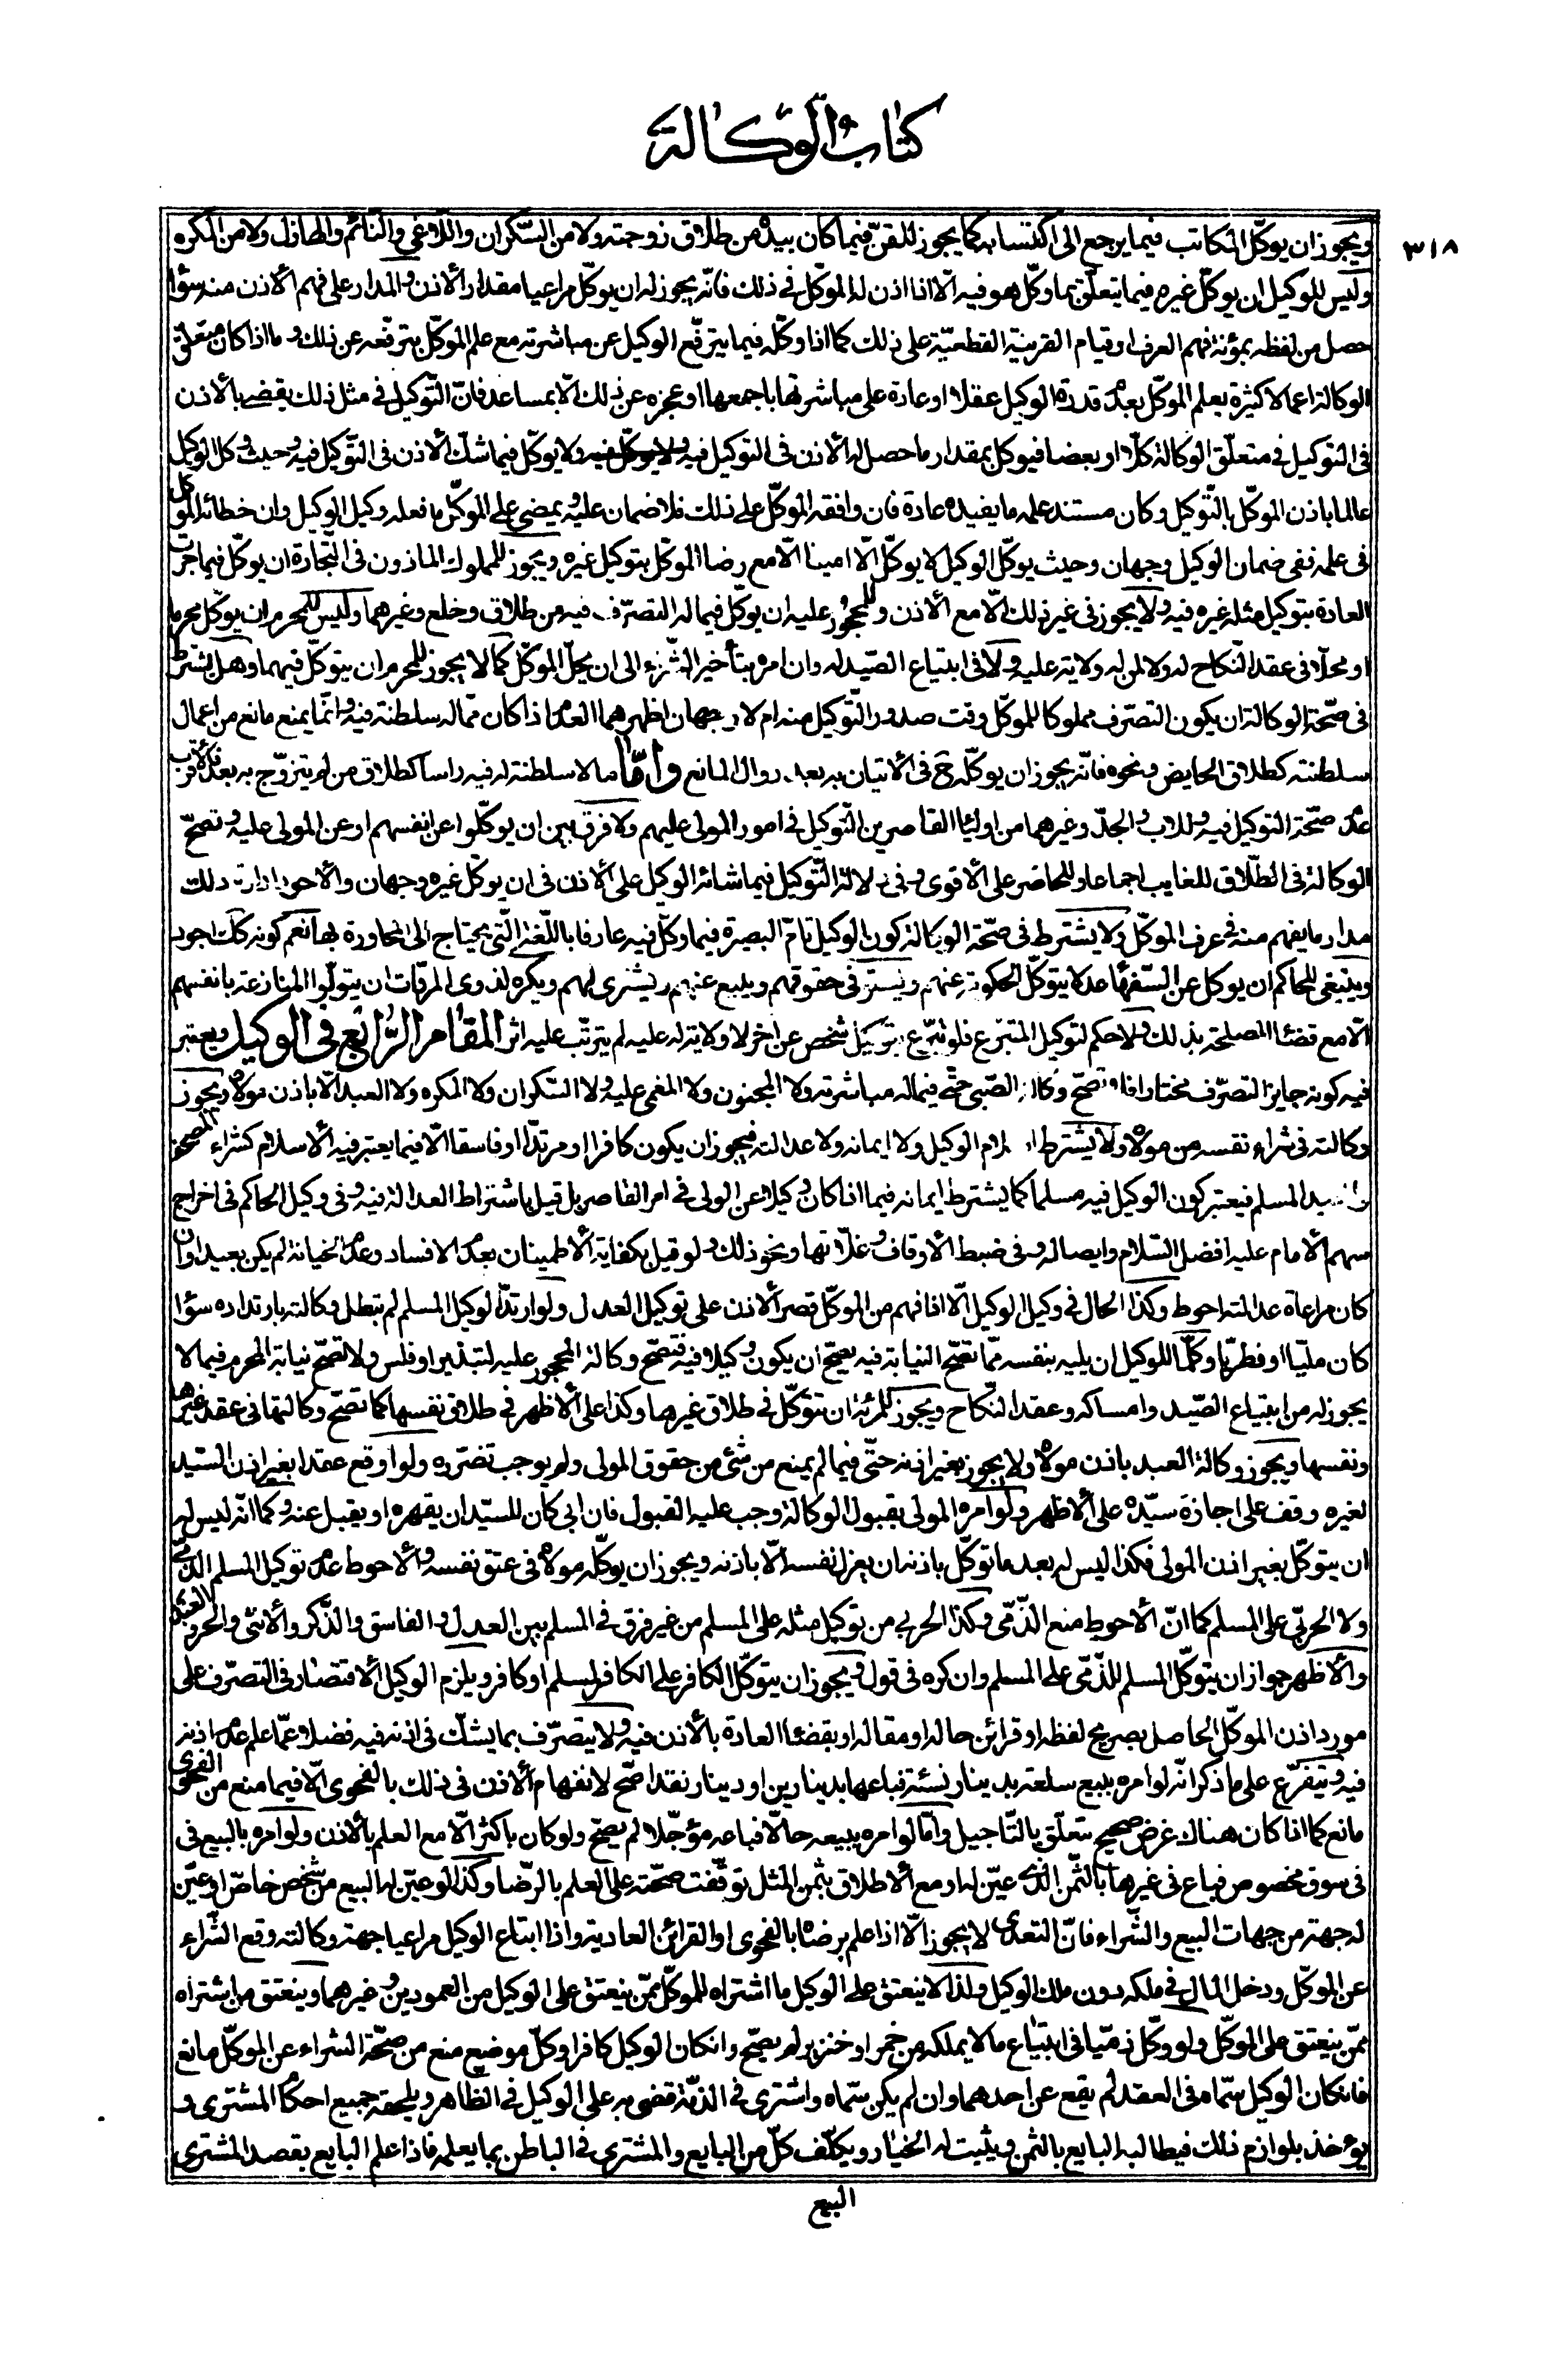 كتاب الوكالة
٣١٨
ويجوز ان يوكّل المكاتب فيما يرجع الى اكتسابه كما يجوز للقنّ فيما كان بيده من طلاق زوجته ولا من السّكران واللّاغي والنّائم والهازل ولا من المكره
وليس للوكيل ان يوكّل غيره فيما يتعلّق بما وكّل هو فيه الّا اذا اذن له الموكّل في ذلك فانّه يجوز له ان يوكّل مراعيا مقدار الأذن والمدار على فهم الأذن منه سؤا
حصل من لفظه بمؤنة فهم العرف او قيام القرينة القطعيّة على ذلك كما اذا وكّله فيما يترفّع الوكيل عن مباشرته مع علم الموكّل بترفّعه عن ذلك وما اذا كان متعلق
الوكالة اعمالا كثيرة يعلم الموكّل بعدم قدرة الوكيل عقلا او عادة على مباشرتها باجمعها او عجزه عن ذلك الّا بمساعد فانّ التّوكيل في مثل ذلك يقضي بالأذن
في التوكيل في متعلّق الوكالة كلّا او بعضا فيوكل بمقدار ما حصل له الأذن في التوكيل فيه ولا يوكّل فيما شكّ الأذن في التّوكيل فيه وحيث وكل الوكيل
عالما باذن الموكّل بالتّوكيل وكان مستند علمه ما يفيده عادة فان وافقه الموكّل على ذلك فلا ضمان عليه ويمضي على الموكّل ما فعله وكيل الوكيل وان خطائه الموكل
في علمه نفى ضمان الوكيل وجهان وحيث يوكّل الوكيل لا يوكّل الّا امينا الّا مع رضا الموكّل بتوكيل غيره ويجوز للمملوك الماذون في التّجارة ان يوكّل فيما جرت
العادة بتوكيل مثله غيره فيه ولا يجوز في غير ذلك الّا مع الأذن وللمحجور عليه ان يوكّل فيما له التصرّف فيه من طلاق وخلع وغيرهما وليس للمحرم ان يوكّل محرما
او محلّا في عقد النّكاح له ولا لمن له ولاية عليه ولا في ابتياع الصّيد له وان امره بتأخير الشّراء الى ان يحلّ الموكّل كما لا يجوز للمحرم ان يتوكّل فيهما وهل يشترط
في صحّة الوكالة ان يكون التصرّف مملوكا للموكّل وقت صدور التّوكيل منه ام لا وجهان اظهرهما العدم اذا كان ممّا له سلطنة فيه وانّما يمنع مانع من اعمال
سلطنته كطلاق الحايض ونحوه فانّه يجوز ان يوكّله ح في الأتيان به بعد زوال المانع وامّا ما لا سلطنة له فيه راسا كطلاق من لم يتزوّج به بعد فالأقرب
عدم صحّة التوكيل فيه وللاب والجدّ وغيرهما من اوليٓا القاصرين التّوكيل في امور المولى عليهم ولا فرق بين ان يوكّلوا عن انفسهم او عن المولى عليه وتصحّ
الوكالة في الطّلاق للغايب اجماعا وللحاضر على الأقوى وفي دلالة التّوكيل فيما شائه الوكيل على الأذن في ان يوكّل غيره وجهان والأحوط ادارة ذلك
مدار ما يفهم منه في عرف الموكّل ولا يشترط في صحّة الوكالة كون الوكيل تامّ البصيرة فيما وكّل فيه عارفا باللّغة الّتي يحتاج الى المحاورة بها نعم كونه كك اجود
وينبغي للحاكم ان يوكل عن السّفهآ عدلا يتوكّل الحكومة عنهم ويستوفى حقوقهم ويبيع عنهم ويشترى لهم ويكره لذوى المروّات ان يتولّوا المنازعة بانفسهم
الّا مع قضٓا المصلحة بذلك ولا حكم لتوكيل المتبرّع فلو تبرّع بتوكيل شخص عن اخر لا ولاية له عليه لم يترتّب عليه اثر المقام الرّابع في الوكيل ويعتبر
فيه كونه جايز التصرّف مختارا فلا تصحّ وكالة الصّبي حتّى فيما له مباشرته ولا المجنون ولا المغمى عليه ولا السّكران ولا المكره ولا العبد الّا باذن مولاه ويجوز
وكالته في شراء نفسه من مولاه ولا يشترط اسلام الوكيل ولا ايمانه ولا عدالته فيجوز ان يكون كافرا او مرتدّا او فاسقا الّا فيما يعتبر فيه الأسلام كشراء المصحف
والعبد المسلم فيعتبر كون الوكيل فيه مسلما كما يشترط ايمانه فيما اذا كان وكيلا عن الولى في امر القاصر بل قيل باشتراط العدالة فيه وفي وكيل الحاكم في اخراج
سهم الأمام عليه افضل السّلام وايصاله وفي ضبط الأوقاف وغلّاتها ونحو ذلك ولو قيل بكفاية الأطمينان بعدم الافساد وعدم الخيانة لم يكن بعيدا وان
كان مراعاة عدالته احوط وكذا الحال في وكيل الوكيل الّا اذا فهم من الموكّل قصر الأذن على توكيل العدل ولو ارتدّ الوكيل المسلم لم تبطل وكالته بارتداده سؤا
كان ملّيا او فطريّا وكلّما للوكيل ان يليه بنفسه ممّا تصحّ النيابة فيه يصحّ ان يكون وكيلا فيه فتصحّ وكالة المحجور عليه لتبذير او فلس ولا تصحّ نيابة المحرم فيما لا
يجوز له من ابتياع الصّيد وامساكه وعقد النّكاح ويجوز للمرئة ان تتوكّل في طلاق غيرها وكذا على الأظهر في طلاق نفسها كما تصحّ وكالتها في عقد غيرها
ونفسها ويجوز وكالة العبد باذن مولاه ولا يجوز بغير اذنه حتّى فيما لم يمنع من شئ من حقوق المولى ولم يوجب تضرّره ولو اوقع عقدا بغير اذن السّيد
لغيره وقف على اجازة سيّده على الأظهر ولو امره المولى بقبول الوكالة وجب عليه القبول فان ابى كان للسيّد ان يقهره او يقبل عنه وكما انّه ليس له
ان يتوكّل بغير اذن المولى فكذا ليس له بعد ما توكّل باذنه ان يعزل نفسه الّا باذنه ويجوز ان يوكّله مولاه في عتق نفسه والأحوط عدم توكيل المسلم الذّمّي
ولا الحربّي على المسلم كما انّ الأحوط منع الذّمّى وكذا الحربي من توكيل مثله على المسلم من غير فرق في المسلم بين العدل والفاسق والذّكر والأنثى والحرّ والعبد
والأظهر جواز ان يتوكّل المسلم للذّمّى على المسلم وان كره في قول ويجوز ان يتوكّل الكافر على الكافر لمسلم او كافر ويلزم الوكيل الأقتصار في التصرّف على
مورد اذن الموكّل الحاصل بصريح لفظه او قرائن حاله او مقاله او بقضٓا العادة بالأذن فيه ولا يتصرّف بما يشكّ في اذنه فيه فضلا عمّا علم عدم اذنه
فيه ويتفرّع على ما ذكر انّه لو امره ببيع سلعته بدينار نسئة فباعها بدينارين او دينار نقدا صحّ لانفهام الأذن في ذلك بالفحوى الّا فيما منع من الفحوى
مانع كما اذا كان هناك غرض صحيح يتعلّق بالتّاجيل وامّا لو امره ببيعه حالّا فباعه مؤجّلا لم يصحّ ولو كان باكثر الّا مع العلم بالأذن ولو امره بالبيع في
في سوق مخصوص فباع في غيرها بالثّمن الّذي عيّن له او مع الأطلاق بثمن المثل توقّفت صحّته على العلم بالرّضا وكذا لو عيّن له البيع من شخص خاصّ او عيّن
له جهة من جهات البيع والشّراء فانّ التعدى لا يجوز الّا اذا علم برضاه بالفحوى او القرائن العادية واذا ابتاع الوكيل مراعيا جهة وكالته وقع الشّراء
عن الموكّل ودخل المال في ملكه دون ملك الوكيل ولذا لا ينعتق على الوكيل ما اشتراه للموكّل ممّن ينعتق على الوكيل من العمودين وغيرهما وينعتق من اشتراه
ممّن ينعتق على الموكّل ولو وكّل ذمّيا في ابتياع ما لا يملكه من خمر او خنزير لم يصحّ وانكان الوكيل كافرا وكلّ موضع منع من صحّة الشراء عن الموكّل مانع
فانكان الوكيل سمّاه في العقد لم يقع عن احدهما وان لم يكن سمّاه واشترى في الذمّة قضى به على الوكيل في الظّاهر ويلحقه جميع احكام المشترى و
يؤخذ بلوازم ذلك فيطالبه البايع بالثمن ويثبت له الخيار ويكلّف كلّ من البايع والمشترى في الباطن بما يعلمه فاذا علم البايع بقصد المشترى
البيع